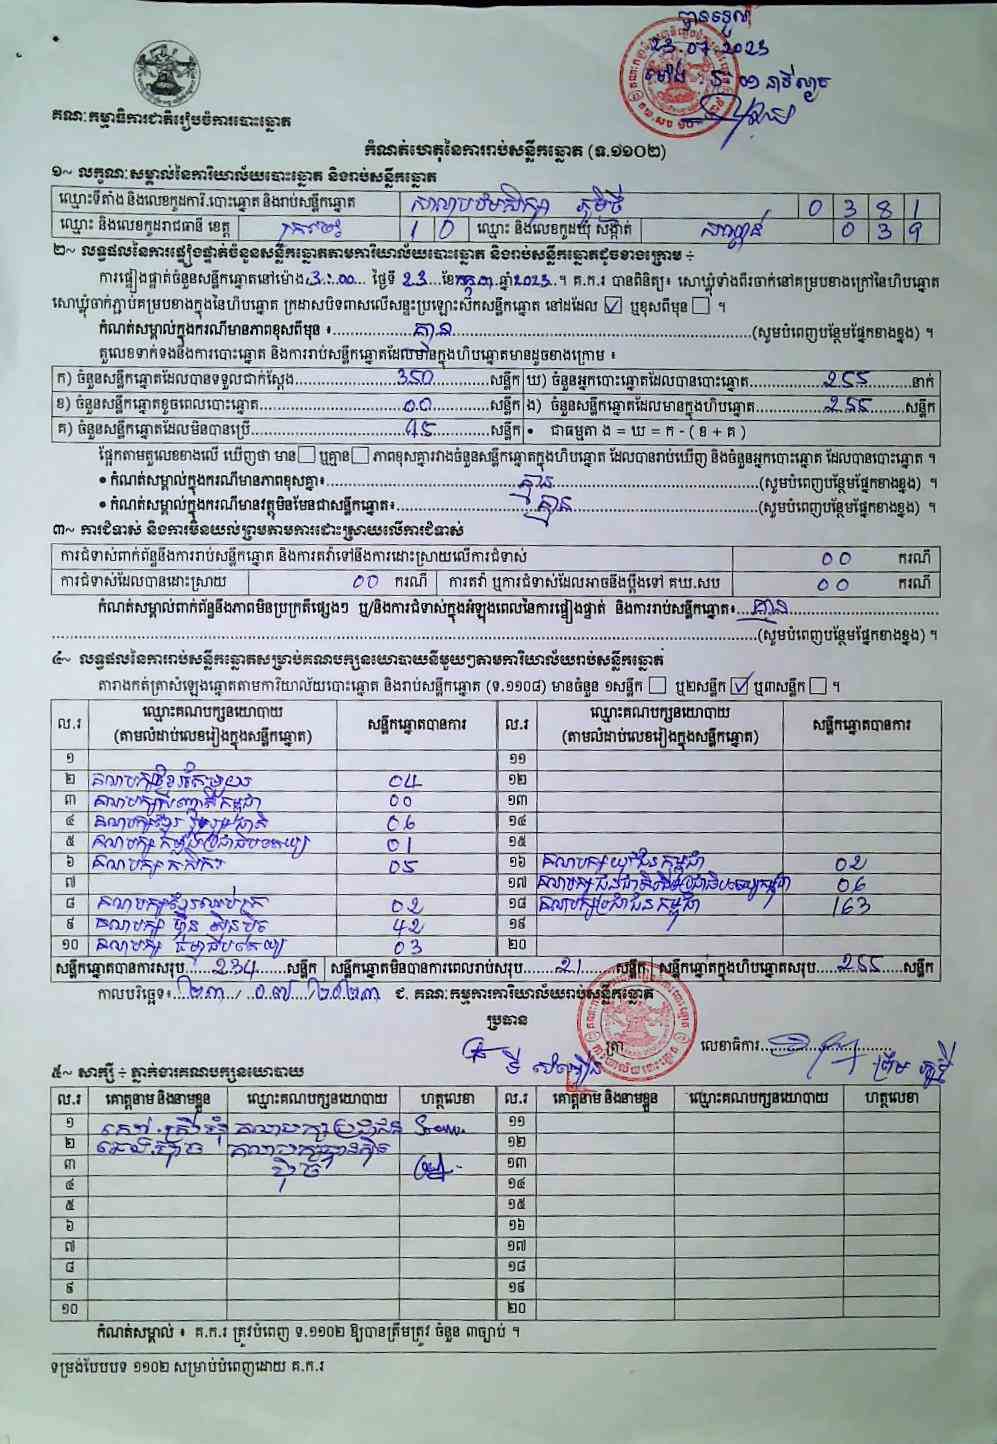 បានទទួល
23.07.2023
គណៈកម្មាធិការជាតិរៀបចំការបោះឆ្នោត
កំណត់ហេតុនៃការរាប់សន្លឹកឆ្នោត (ទ.១១០២)
១~ លក្ខណៈសម្គាល់នៃការិយាល័យបោះឆ្នោត និងរាប់សន្លឹកឆ្នោត
ឈ្មោះទីតាំង និងលេខកូដការិ.បោះឆ្នោត និងរាប់សន្លឹកឆ្នោត សាលាបឋមសិក្សា ភូមិថ្មី 0 3 8 1
ឈ្មោះ និងលេខកូដរាជធានី ខេត្ត ក្រចេះ 1 0 ឈ្មោះ និងលេខកូដឃុំ សង្កាត់ 0 3 9
២~ លទ្ធផលនៃការផ្ទៀងផ្ទាត់ចំនួនសន្លឹកឆ្នោតតាមការិយាល័យបោះឆ្នោត និងរាប់សន្លឹកឆ្នោតដូចខាងក្រោម ÷
ការផ្ទៀងផ្ទាត់ចំនួនសន្លឹកឆ្នោតនៅម៉ោង 3:00 ថ្ងៃទី 23 ខែ កក្កដា ឆ្នាំ 2023 ។ គ.ក.រ បានពិនិត្យ៖ សោឃ្លុំទាំងពីរចាក់នៅគម្របខាងក្រៅនៃហិបឆ្នោត
សោឃ្លុំចាក់ភ្ជាប់គម្របខាងក្នុងនៃហិបឆ្នោត ក្រដាសបិទពាសលើសន្ទះប្រឡោះស៊កសន្លឹកឆ្នោត នៅដដែល ☑ ឬខុសពីមុន ☐ ។
កំណត់សម្គាល់ក្នុងករណីមានភាពខុសពីមុន ៖ គ្មាន (សូមបំពេញបន្ថែមផ្នែកខាងខ្នង) ។
តួលេខទាក់ទងនឹងការបោះឆ្នោត និងការរាប់សន្លឹកឆ្នោតដែលមានក្នុងហិបឆ្នោតមានដូចខាងក្រោម ៖
ក) ចំនួនសន្លឹកឆ្នោតដែលបានទទួលជាក់ស្ដែង 350 សន្លឹក ឃ) ចំនួនអ្នកបោះឆ្នោតដែលបានបោះឆ្នោត 255 នាក់
ខ) ចំនួនសន្លឹកឆ្នោតខូចពេលបោះឆ្នោត 00 សន្លឹក ង) ចំនួនសន្លឹកឆ្នោតដែលមានក្នុងហិបឆ្នោត 255 សន្លឹក
គ) ចំនួនសន្លឹកឆ្នោតដែលមិនបានប្រើ 95 សន្លឹក • ជាធម្មតា ង = ឃ = ក - ( ខ + គ )
ផ្អែកតាមតួលេខខាងលើ ឃើញថា មាន ☐ ឬគ្មាន ☐ ភាពខុសគ្នារវាងចំនួនសន្លឹកឆ្នោតក្នុងហិបឆ្នោត ដែលបានរាប់ឃើញ និងចំនួនអ្នកបោះឆ្នោត ដែលបានបោះឆ្នោត ។
• កំណត់សម្គាល់ក្នុងករណីមានភាពខុសគ្នា៖ គ្មាន (សូមបំពេញបន្ថែមផ្នែកខាងខ្នង) ។
• កំណត់សម្គាល់ក្នុងករណីមានវត្ថុមិនមែនជាសន្លឹកឆ្នោត៖ គ្មាន (សូមបំពេញបន្ថែមផ្នែកខាងខ្នង) ។
៣~ ការជំទាស់ និងការមិនយល់ព្រមតាមការដោះស្រាយលើការជំទាស់
ការជំទាស់ពាក់ព័ន្ធនឹងការរាប់សន្លឹកឆ្នោត និងការតវ៉ាទៅនឹងការដោះស្រាយលើការជំទាស់ 00 ករណី
ការជំទាស់ដែលបានដោះស្រាយ 00 ករណី ការតវ៉ា ឬការជំទាស់ដែលអាចនឹងប្ដឹងទៅ គឃ.សប 00 ករណី
កំណត់សម្គាល់ពាក់ព័ន្ធនឹងភាពមិនប្រក្រតីផ្សេងៗ ឬ/និងការជំទាស់ក្នុងអំឡុងពេលនៃការផ្ទៀងផ្ទាត់ និងការរាប់សន្លឹកឆ្នោត៖ គ្មាន
(សូមបំពេញបន្ថែមផ្នែកខាងខ្នង) ។
៤~ លទ្ធផលនៃការរាប់សន្លឹកឆ្នោតសម្រាប់គណបក្សនយោបាយនីមួយៗតាមការិយាល័យរាប់សន្លឹកឆ្នោត
តារាងកត់ត្រាសំឡេងឆ្នោតតាមការិយាល័យបោះឆ្នោត និងរាប់សន្លឹកឆ្នោត (ទ.១១០៨) មានចំនួន ១សន្លឹក ☐ ឬ២សន្លឹក ☑ ឬ៣សន្លឹក ☐ ។
ល.រ ឈ្មោះគណបក្សនយោបាយ (តាមលំដាប់លេខរៀងក្នុងសន្លឹកឆ្នោត) សន្លឹកឆ្នោតបានការ ល.រ ឈ្មោះគណបក្សនយោបាយ (តាមលំដាប់លេខរៀងក្នុងសន្លឹកឆ្នោត) សន្លឹកឆ្នោតបានការ
១ ១១
២ គណបក្ស 04 ១២
៣ គណបក្ស កម្ពុជា 00 ១៣
៤ គណបក្សខ្មែរ រួបរួមជាតិ 06 ១៤
៥ គណបក្ស កម្លាំងប្រជាធិបតេយ្យ 01 ១៥
៦ គណបក្ស កសិករ 05 ១៦ គណបក្ស យុវជនកម្ពុជា 02
៧ ១៧ គណបក្ស ជនជាតិដើមប្រជាធិបតេយ្យកម្ពុជា 06
៨ គណបក្សខ្មែរឈប់ក្រ 02 ១៨ គណបក្សប្រជាជនកម្ពុជា 163
៩ គណបក្ស ហ្វ៊ុនស៊ិនប៉ិច 42 ១៩
១០ គណបក្ស ធម្មាធិបតេយ្យ 03 ២០
សន្លឹកឆ្នោតបានការសរុប 234 សន្លឹក សន្លឹកឆ្នោតមិនបានការពេលរាប់សរុប 21 សន្លឹក សន្លឹកឆ្នោតក្នុងហិបឆ្នោតសរុប 255 សន្លឹក
កាលបរិច្ឆេទ៖ ២៣/០៧/២០២៣ ជ. គណៈកម្មការការិយាល័យរាប់សន្លឹកឆ្នោត
ប្រធាន
ត្រា លេខាធិការ
៥~ សាក្សី ÷ ភ្នាក់ងារគណបក្សនយោបាយ
ល.រ គោត្តនាម និងនាមខ្លួន ឈ្មោះគណបក្សនយោបាយ ហត្ថលេខា ល.រ គោត្តនាម និងនាមខ្លួន ឈ្មោះគណបក្សនយោបាយ ហត្ថលេខា
១ គណបក្សប្រជាជន ១១
២ គណបក្សហ្វ៊ុនស៊ិន ១២
៣ ប៉ិច ១៣
៤ ១៤
៥ ១៥
៦ ១៦
៧ ១៧
៨ ១៨
៩ ១៩
១០ ២០
កំណត់សម្គាល់ ៖ គ.ក.រ ត្រូវបំពេញ ទ.១១០២ ឱ្យបានត្រឹមត្រូវ ចំនួន ៣ច្បាប់ ។
ទម្រង់បែបបទ ១១០២ សម្រាប់បំពេញដោយ គ.ក.រ